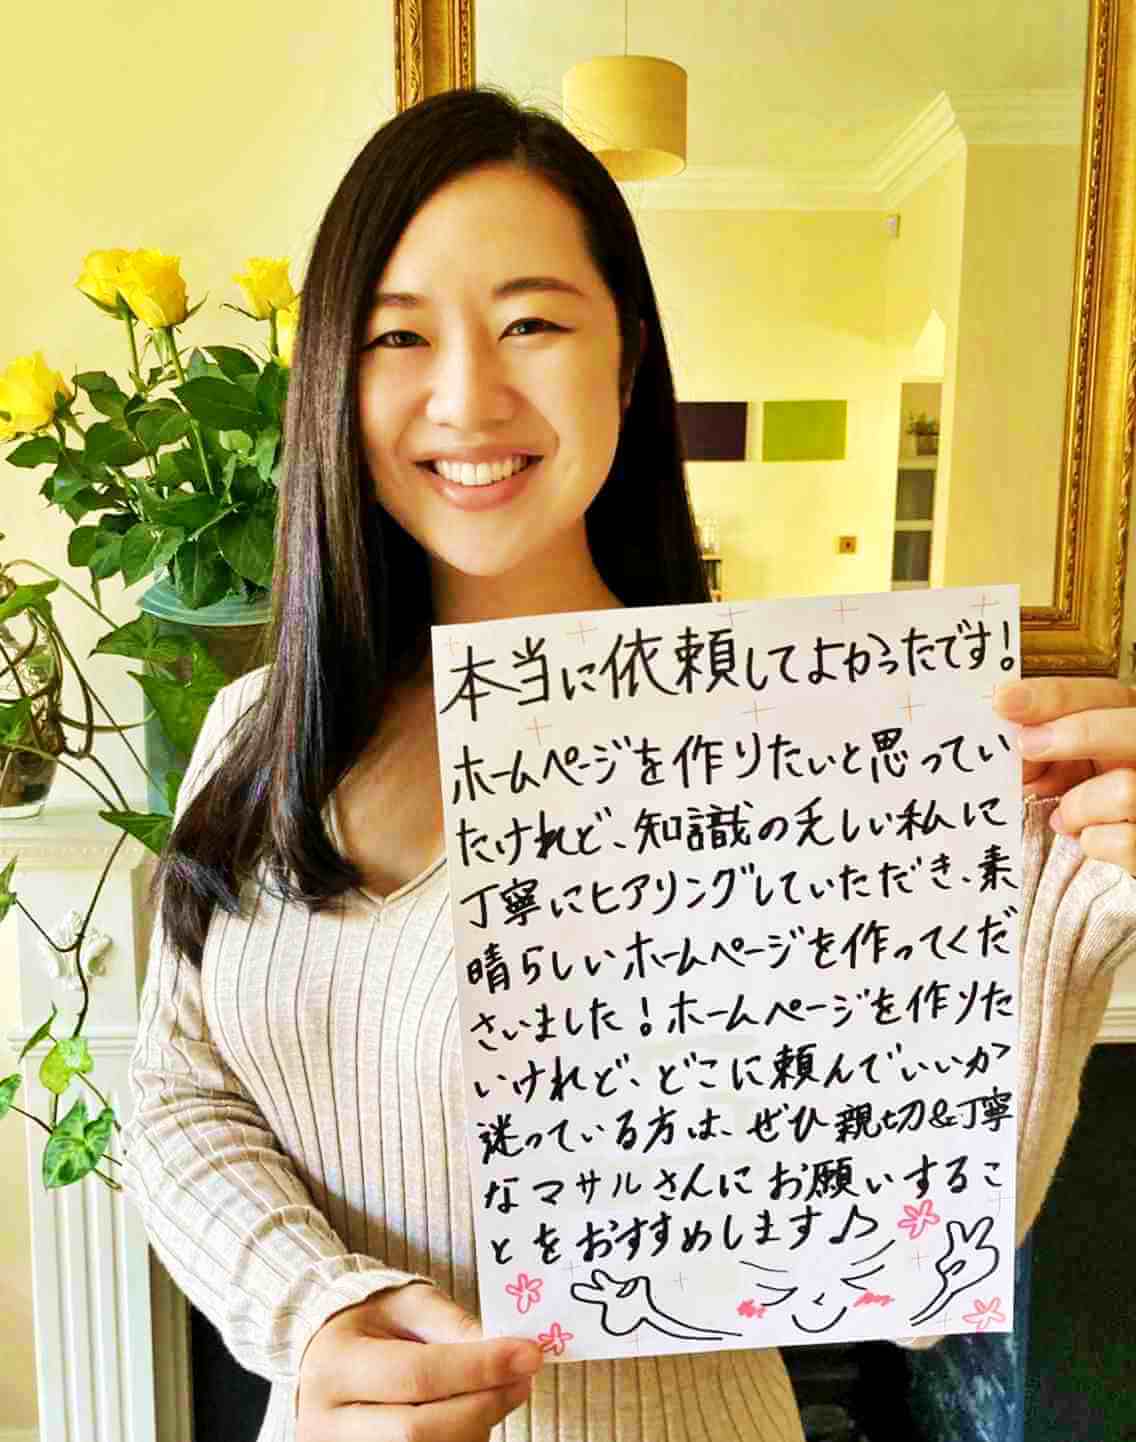 本当に依頼してよかったです!
ホームページを作りたいと思ってい
たけれど、知識の乏しい私に
丁寧にヒアリングしていただき、素
晴らしいホームページを作ってくだ
さいました!ホームページを作りた
いけれど、どこに頼んでいいか
迷っている方は、ぜひ親切&丁寧
なマサルさんにお願いするこ
とをおすすめします♪